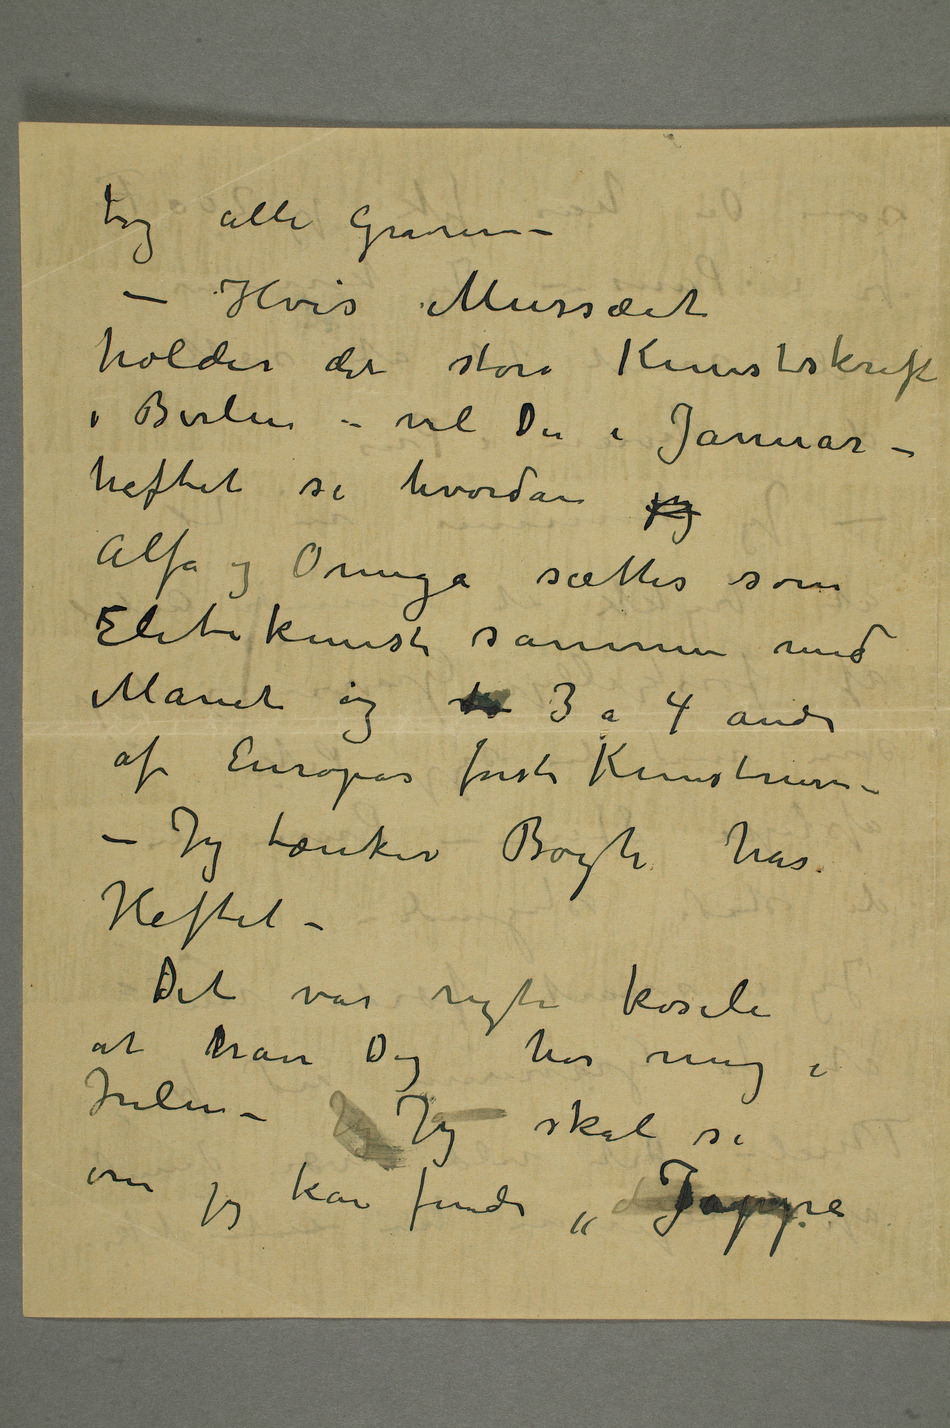 tog alle Graverne –
– Hvis Mussæet
holder det store Kunstskrift
i Berlin – vil Du i Januar –
heftet se hvordan jeg
Alfa og Omega sættes som
Elitekunst sammen med
Manet og 3 a 4 andre
af Europas første Kunstnere –
– Jeg tænker Bøgh har
Heftet –
Det var rigti koseli
at have Dig hos mig i
Julen – Jeg skal se
om jeg kan finde „